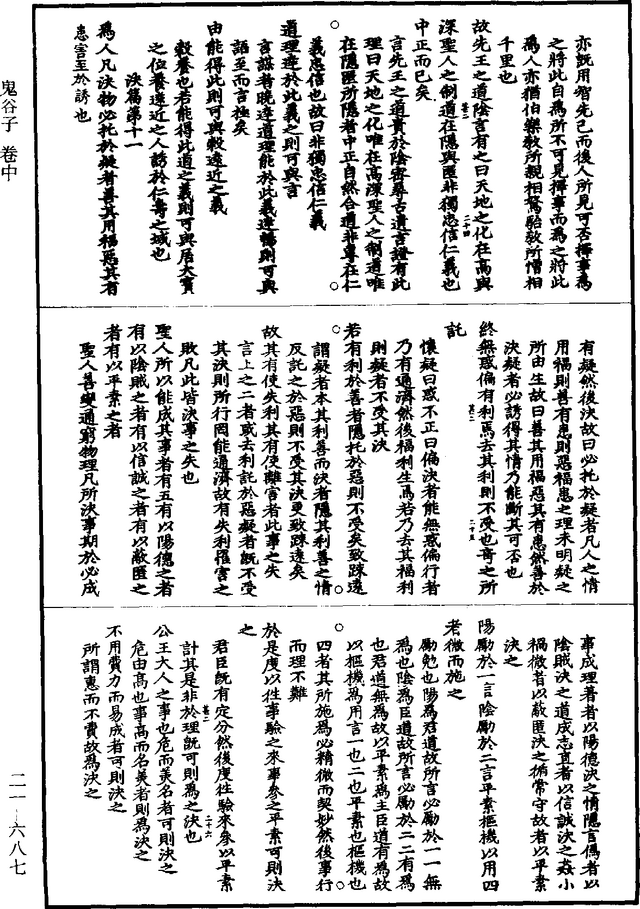 亦既用智先己而後人所見可否擇事為
之將此自為所不可見擇事而為之將此
為人亦猶伯樂教所親相駑駘教所憎相
千里也
故先王之道陰言有之曰天地之化在高與
二十四
深聖人之制道在隱與匿非獨忠信仁義也
中正而已矣
言先王之道貴於陰密尋古遺言證有此
理曰天地之化唯在高深聖人之制道唯
在隱匿所隱者中正自然合道非專在仁
義忠信也故曰非獨忠信仁義
道理達於此義之則可與言
言謀者曉達道理能於此義達暢則可與
語至而言極矣
由能得此則可與穀遠近之義
穀養也若能得此道之義則可與居大寶
之位養遠近之人誘於仁壽之域也
決篇第十一
為人凡決物必托於疑者善其用福惡其有
患害至於誘也
有疑然後決故曰必托於疑者凡人之情
用福則善有患則惡福患之理未明疑之
所由生故曰善其用福惡其有患然善於
決疑者必誘得其情乃能斷其可否也
二十五
終無惑偏有利焉去其利則不受也奇之所
託
懷疑曰惑不正曰偏決者能無惑偏行者
乃有通濟然後福利生焉若乃去其福利
則疑者不受其決
若有利於善者隱托於惡則不受矣致踈遠
謂疑者本其利善而決者隱其利善之情
反託之於惡則不受其決更致踈遠矣
故其有使失利其有使離害者此事之失
言上之二者或去利託於惡疑者既不受
其決則所行罔能通濟故有失利罹害之
敗凡此皆決事之失也
聖人所以能成其事者有五有以陽德之者
有以陰賊之者有以信誠之者有以蔽匿之
者有以平素之者
聖人善變通窮物理凡所決事期於必成
事成理著者以陽德決之情隱言偽者以
陰賊決之道成志直者以信誠決之姦小
禍微者以蔽匿決之循常守故者以平素
決之
陽勵於一言陰勵於二言平素樞機以用四
者微而施之
勵勉也陽為君道故所言必勵於一一無
為也陰為臣道故所言必勵於二二有為
也君道無為故以平素為主臣道有為故
以樞機為用言一也二也平素也樞機也
四者其所施為必精微而契妙然後事行
而理不難
於是度以往事驗之來事參之平素可則決
之
君臣既有定分然後度往驗來參以平素
二十六
計其是非於理既可則為之決也
公王大人之事也危而美名者可則決之
危由高也事高而名美者則為決之
不用費力而易成者可則決之
所謂惠而不費故為決之
鬼谷子 卷中
二一—六八七